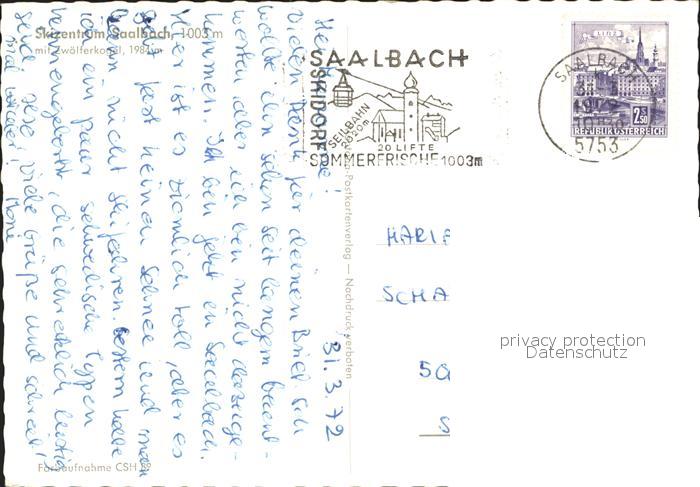 Skizentrum Saalbach, 1003 m
mit Zwölferkogel, 1984 m
SAALBACH
SKIDORF
SEILBAHN
2020m
20 LIFTE
SOMMERFRISCHE 1003m
LINZ
SAALBACH
5753
2.50
REPUBLIK ÖSTERREICH
31.3.72
vielen Dank für deinen Brief ich
wollte ihn schon seit langem beant-
worten aber ich bin nicht dazuge-
kommen. Ich bin jetzt in Saalbach.
Hier ist es ziemlich toll, aber es
gibt fast keinen Schnee und man
kann nicht skifahren. Gestern habe
ich ein paar schwedische Typen
kennengelernt, die schrecklich lustig
sind. Viele Grüße und schreib
mal wieder!
MARIE
SCHA
50
S
Postkartenverlag — Nachdruck verboten
Farbaufnahme CSH
privacy protection
Datenschutz